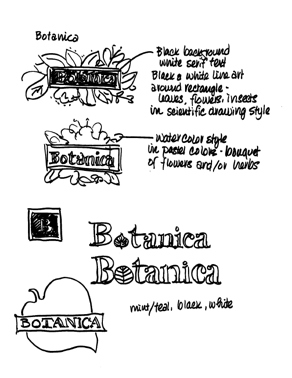 Botanica
Black background
white serif text
Black & white line art
around rectangle -
leaves, flowers, insects
in scientific drawing style
Botanica
watercolor style
in pastel colors - bouquet
of flowers and/or herbs
Botanica
B
Botanica
Botanica
mint/teal, black, white
BOTANICA